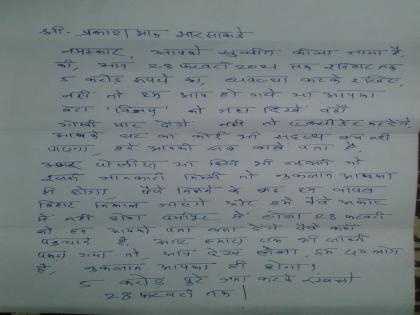 श्री. प्रकाश भाऊ मारसाकडे
नमस्कार, आपको सुचीत कीया जाता है,
की, आप 28 फरवरी 2021 तक रविवार तक
5 करोड रुपये का, व्यवस्था करके रखिए,
नहीं तो हम आप हो गये या आपका
बेटा "विजय" को जहां दिखे वहाँ
गोली मार देंगे नहीं तो एक्सीडेंट करदेंगे
आपके घर का कोई भी सदस्य बच नहीं
पाएगा, हमे आपकी सब बाते पता है,
अगर पोलीस या किसी भी व्यक्ती को
इसकी जानकारी मिली तो नुकसान आपका
ही होगा, पैसे मिलने के बाद हम वापस
बिहार निकल जाएंगे और हमे पैसे
में नहीं होना में होना 28 फरवरी
को हम आपको पता बता देंगे पैसे कहाँ
पहुचाने है, अगर हमारा एक भी साथी
पकडा गया तो आप देख लेना, हम 4 लोग
है, नुकसान आपका ही होगा!
5 करोड पुरे जमा करके रखना
28 फरवरी तक!